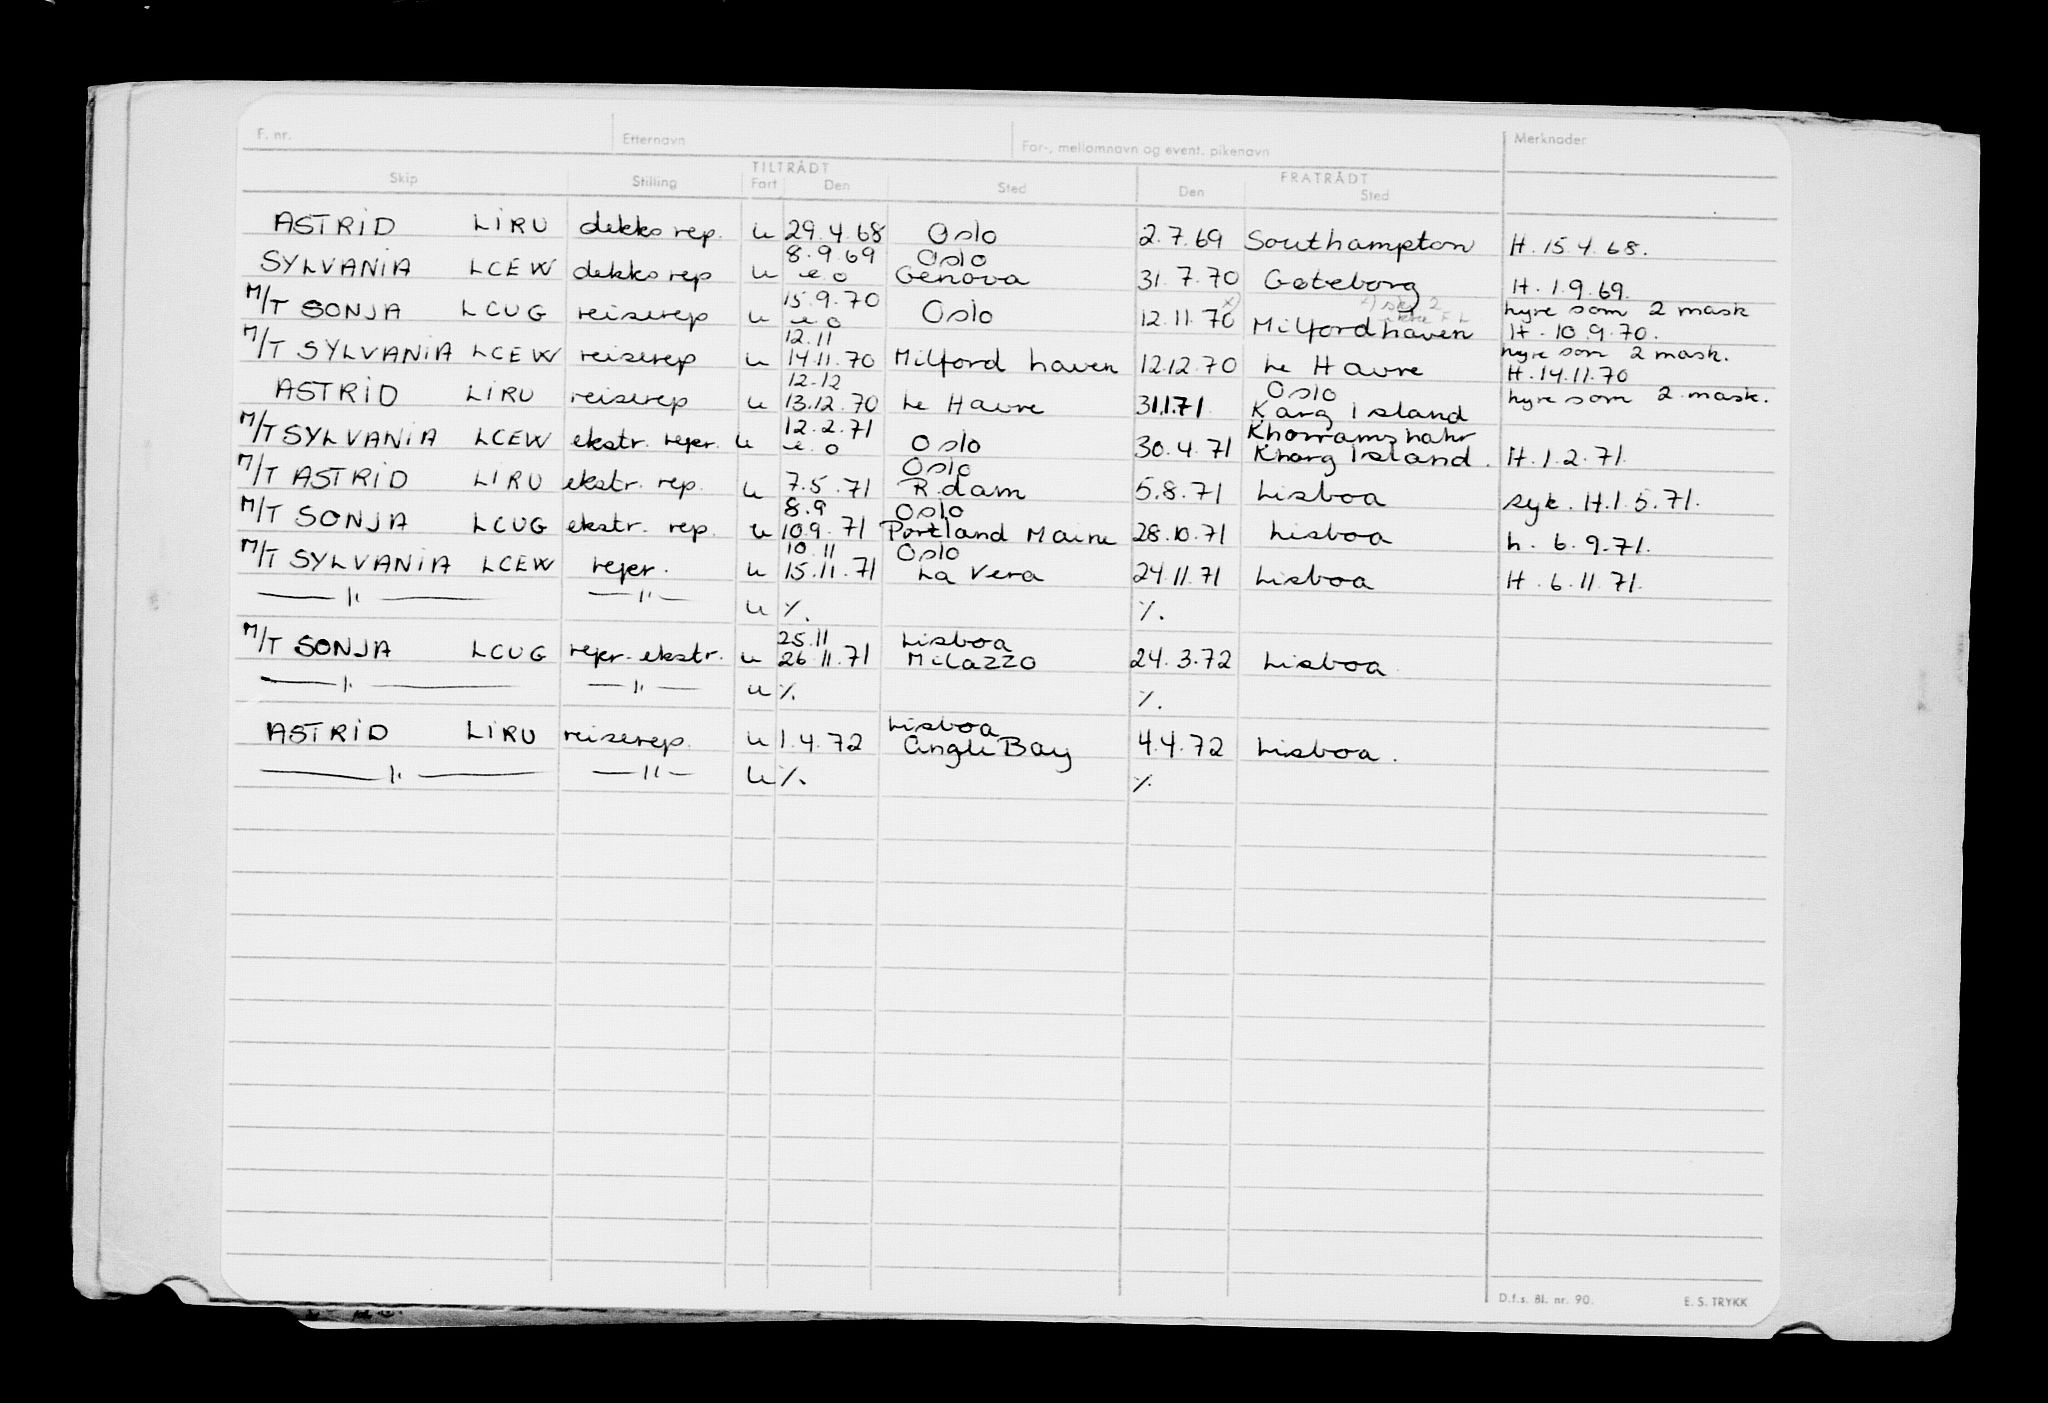 F. nr. Etternavn For-, mellomnavn og event. pikenavn Merknader
TILTRÅDT FRATRÅDT
Skip Stilling Fart Den Sted Den Sted
ASTRID LIRU dekksrep. u 29.4.68 Oslo 2.7.69 Southampton H. 15.4.68.
8.9.69 Oslo
SYLVANIA LCEW dekksrep u e o Genova 31.7.70 Gøteborg H. 1.9.69.
15.9.70 x) x) hyre som 2 mask
M/T SONJA LCUG reiserep u e o Oslo 12.11.70 Milfordhaven H. 10.9.70.
12.11 hyre som 2 mask.
M/T SYLVANIA LCEW reiserep u 14.11.70 Milford haven 12.12.70 Le Havre H. 14.11.70
12.12 Oslo
ASTRID LIRU reiserep u 13.12.70 Le Havre 31.1.71 Karg Island hyre som 2 mask.
12.2.71 Khorramshahr
M/T SYLVANIA LCEW ekstr. repr. u e o Oslo 30.4.71 Kharg Island. H. 1.2.71.
Oslo
M/T ASTRID LIRU ekstr. rep. u 7.5.71 R.dam 5.8.71 Lisboa syk. H.1.5.71.
8.9 Oslo
M/T SONJA LCUG ekstr. rep. u 10.9.71 Portland Maine 28.10.71 Lisboa h. 6.9.71.
10.11 Oslo
M/T SYLVANIA LCEW reper. u 15.11.71 La Vera 24.11.71 Lisboa H. 6.11.71.
—— " —— — " — u %. %.
25.11 Lisboa
M/T SONJA LCUG repr. ekstr. u 26.11.71 Milazzo 24.3.72 Lisboa.
—— " —— — " — u %. %.
Lisboa
ASTRID LIRU reiserep. u 1.4.72 Angle Bay 4.4.72 Lisboa.
—— " —— — " — u %. %.
D.f.s. Bl. nr. 90. E. S. TRYKK